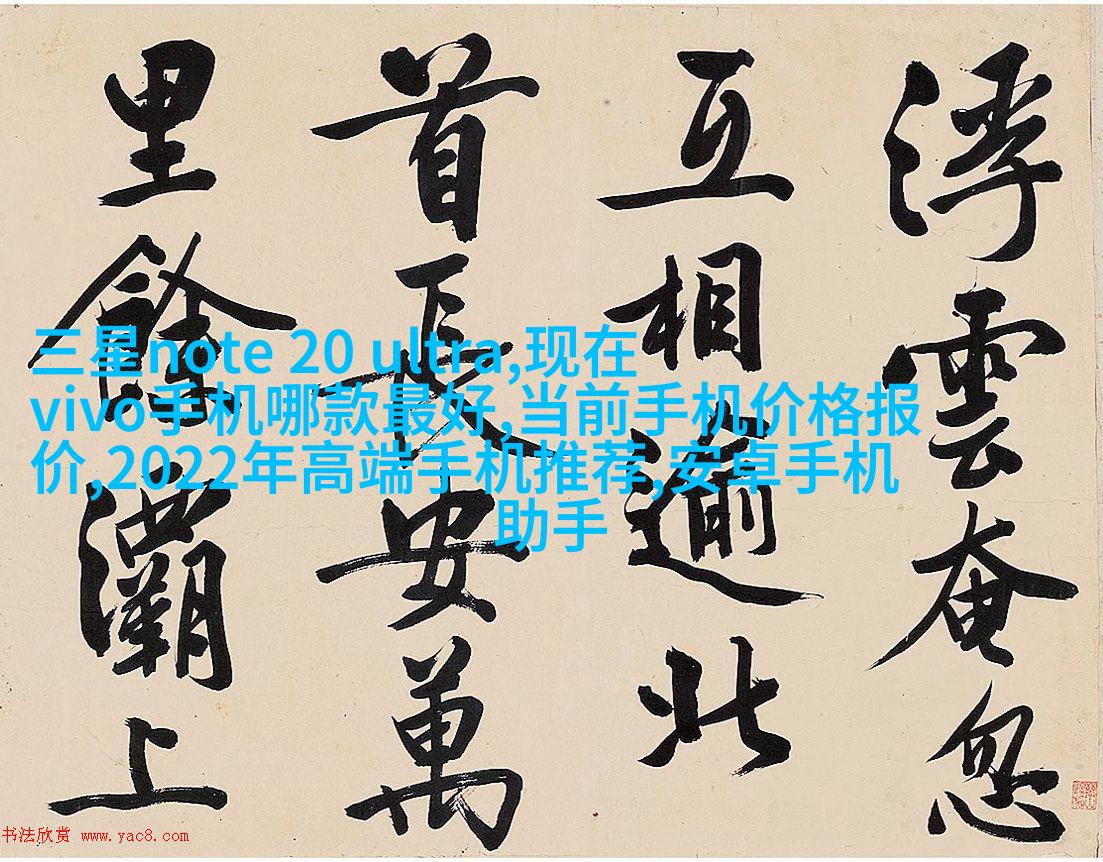 浮雲奄忽
互相逾北
首長安萬
里餘灞上
三星note 20 ultra,现在
vivo手机哪款最好,当前手机价格报
价,2022年高端手机推荐,安卓手机
助手
书法欣赏 www.yac8.com